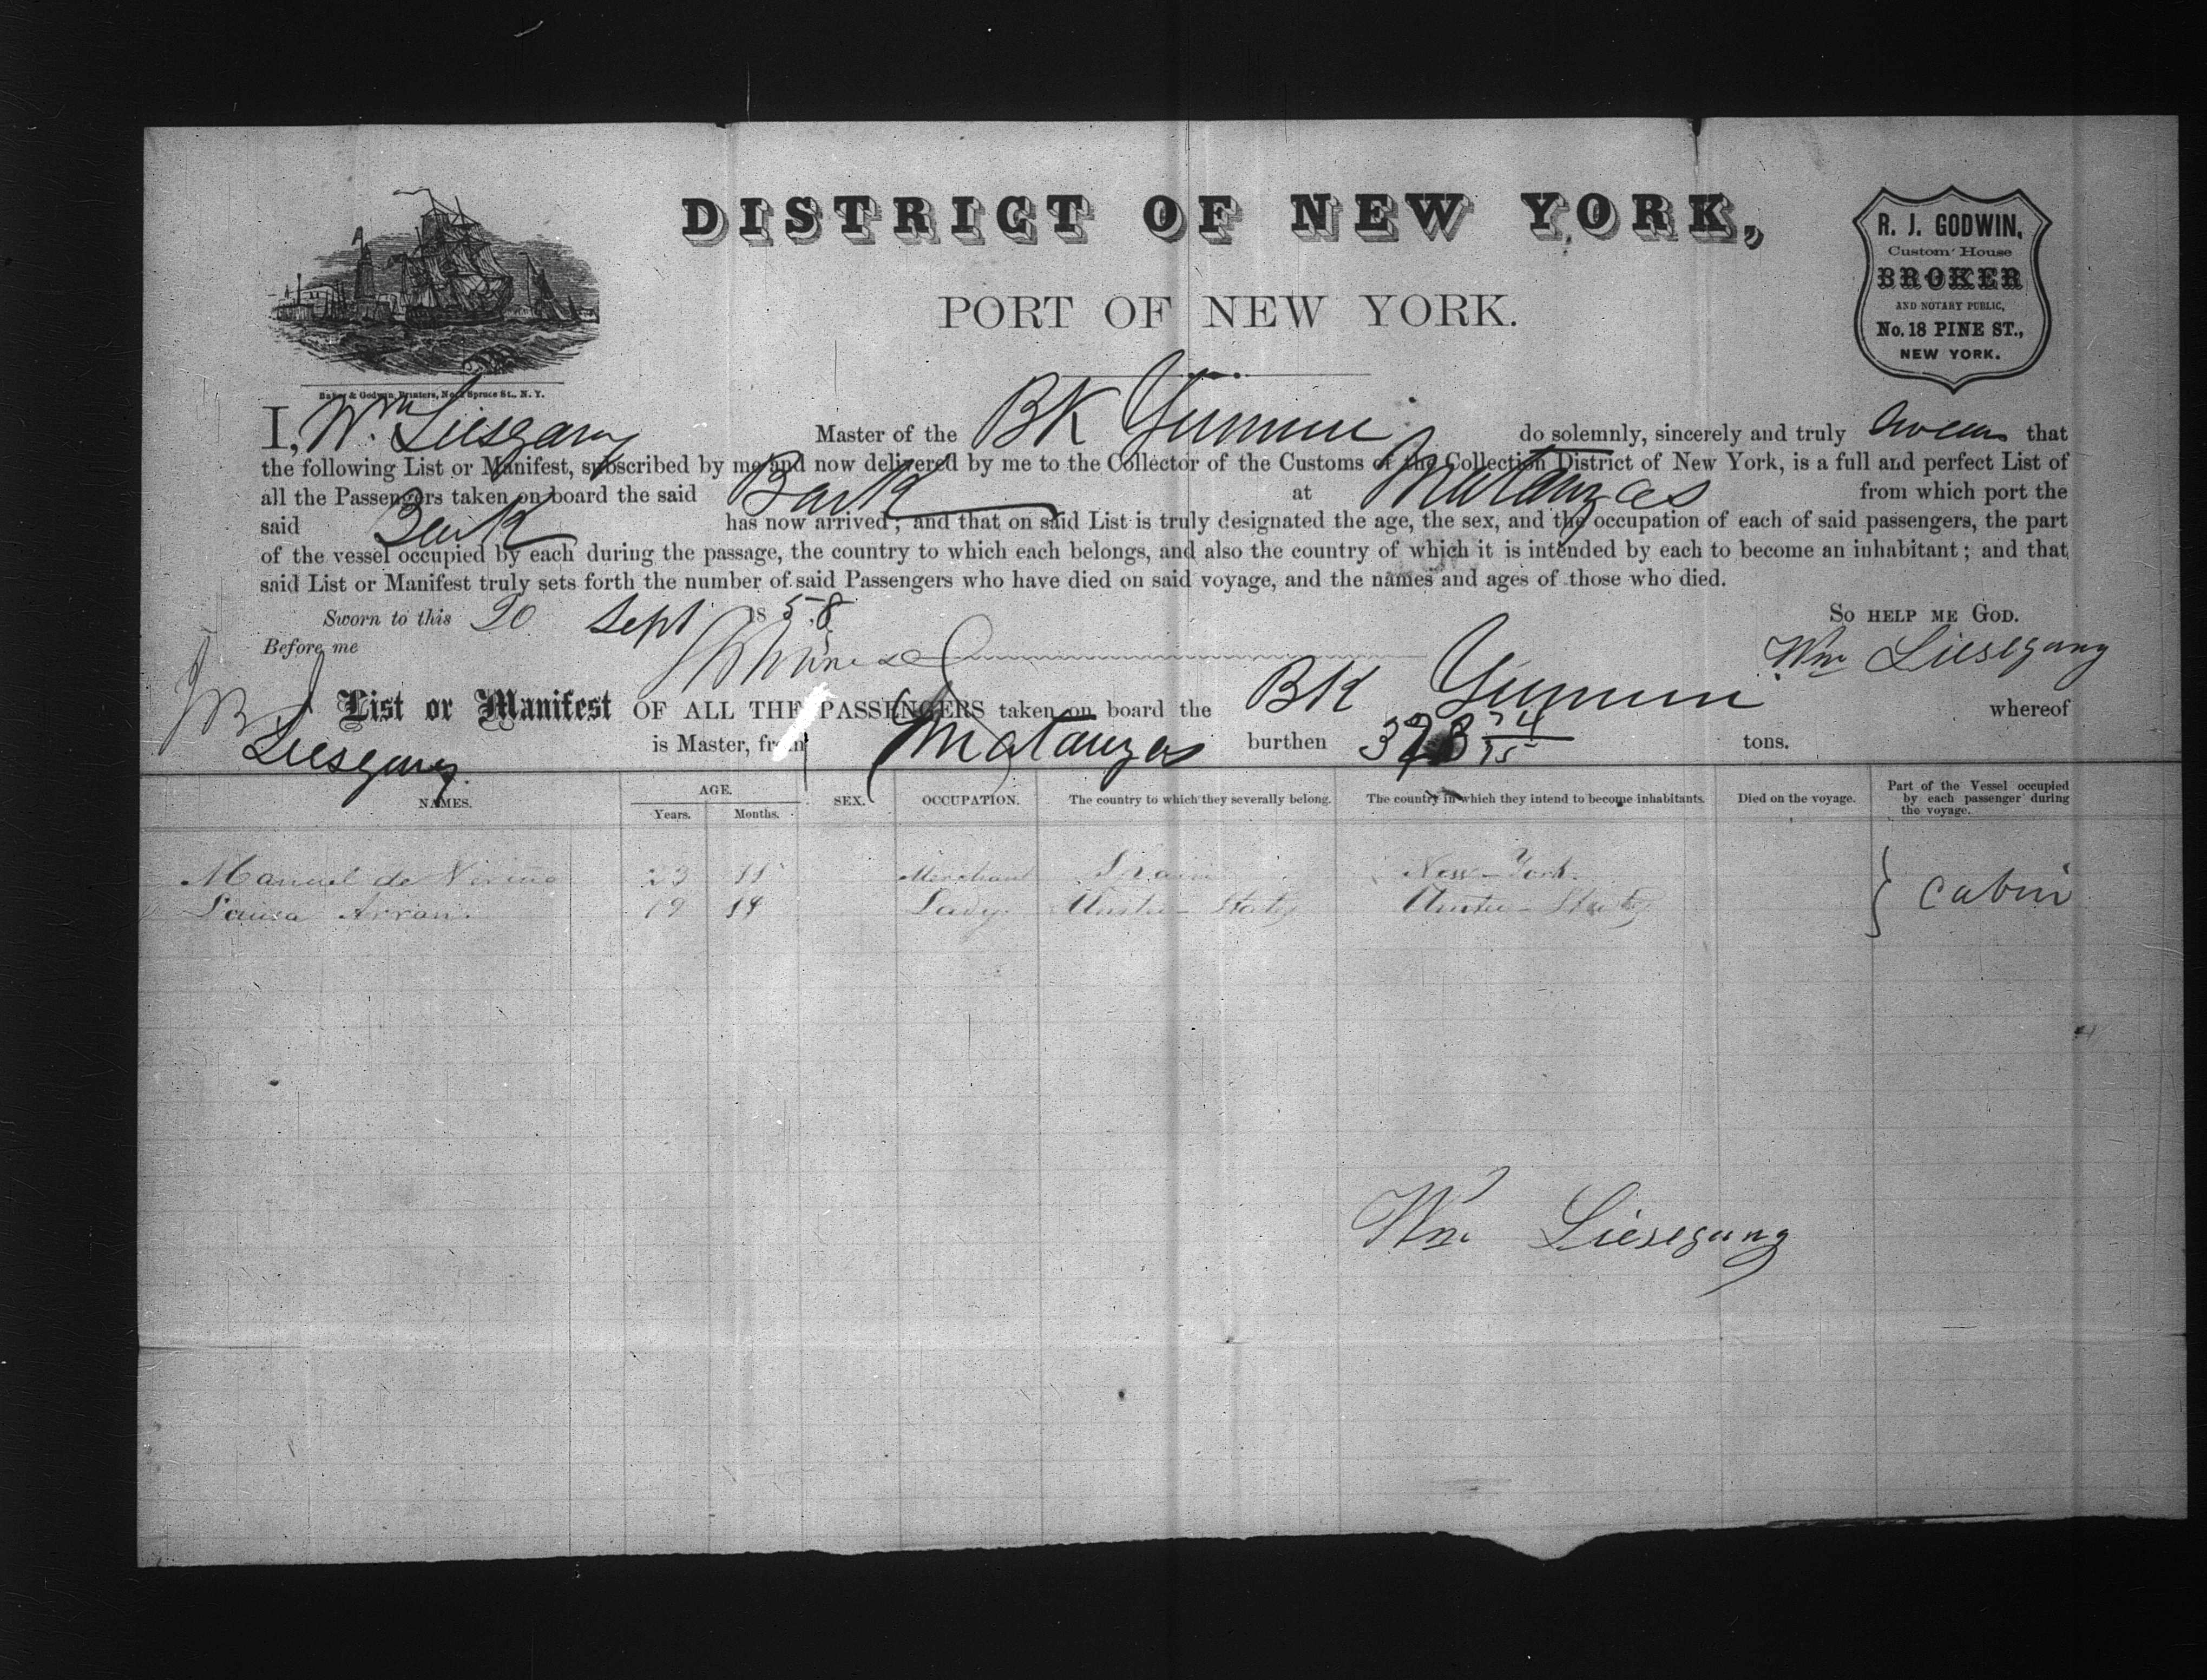 DISTRICT OF NEW YORK,
PORT OF NEW YORK.
R. J. GODWIN,
Custom House
BROKER
AND NOTARY PUBLIC,
No. 18 PINE ST.,
NEW YORK.
Baker & Godwin, Printers, No. 1 Spruce St., N. Y.
I, Wm Liesgang Master of the BK do solemnly, sincerely and truly swear that
the following List or Manifest, subscribed by me and now delivered by me to the Collector of the Customs of the Collection District of New York, is a full and perfect List of
all the Passengers taken on board the said Bark at Matanzas from which port the
said Bark has now arrived; and that on said List is truly designated the age, the sex, and the occupation of each of said passengers, the part
of the vessel occupied by each during the passage, the country to which each belongs, and also the country of which it is intended by each to become an inhabitant; and that
said List or Manifest truly sets forth the number of said Passengers who have died on said voyage, and the names and ages of those who died.
Sworn to this 20 Sept 1858 So HELP ME GOD.
Before me Wm Liesegang
List or Manifest OF ALL THE PASSENGERS taken on board the BK whereof
Liesgang is Master, from Matanzas burthen tons.
NAMES. AGE. Years. Months. SEX. OCCUPATION. The country to which they severally belong. The country in which they intend to become inhabitants. Died on the voyage. Part of the Vessel occupied by each passenger during the voyage.
Manuel de 23 11 Merchant Spain New-York
Louisa 19 Lady States States
} Cabin
Wm Liesegang